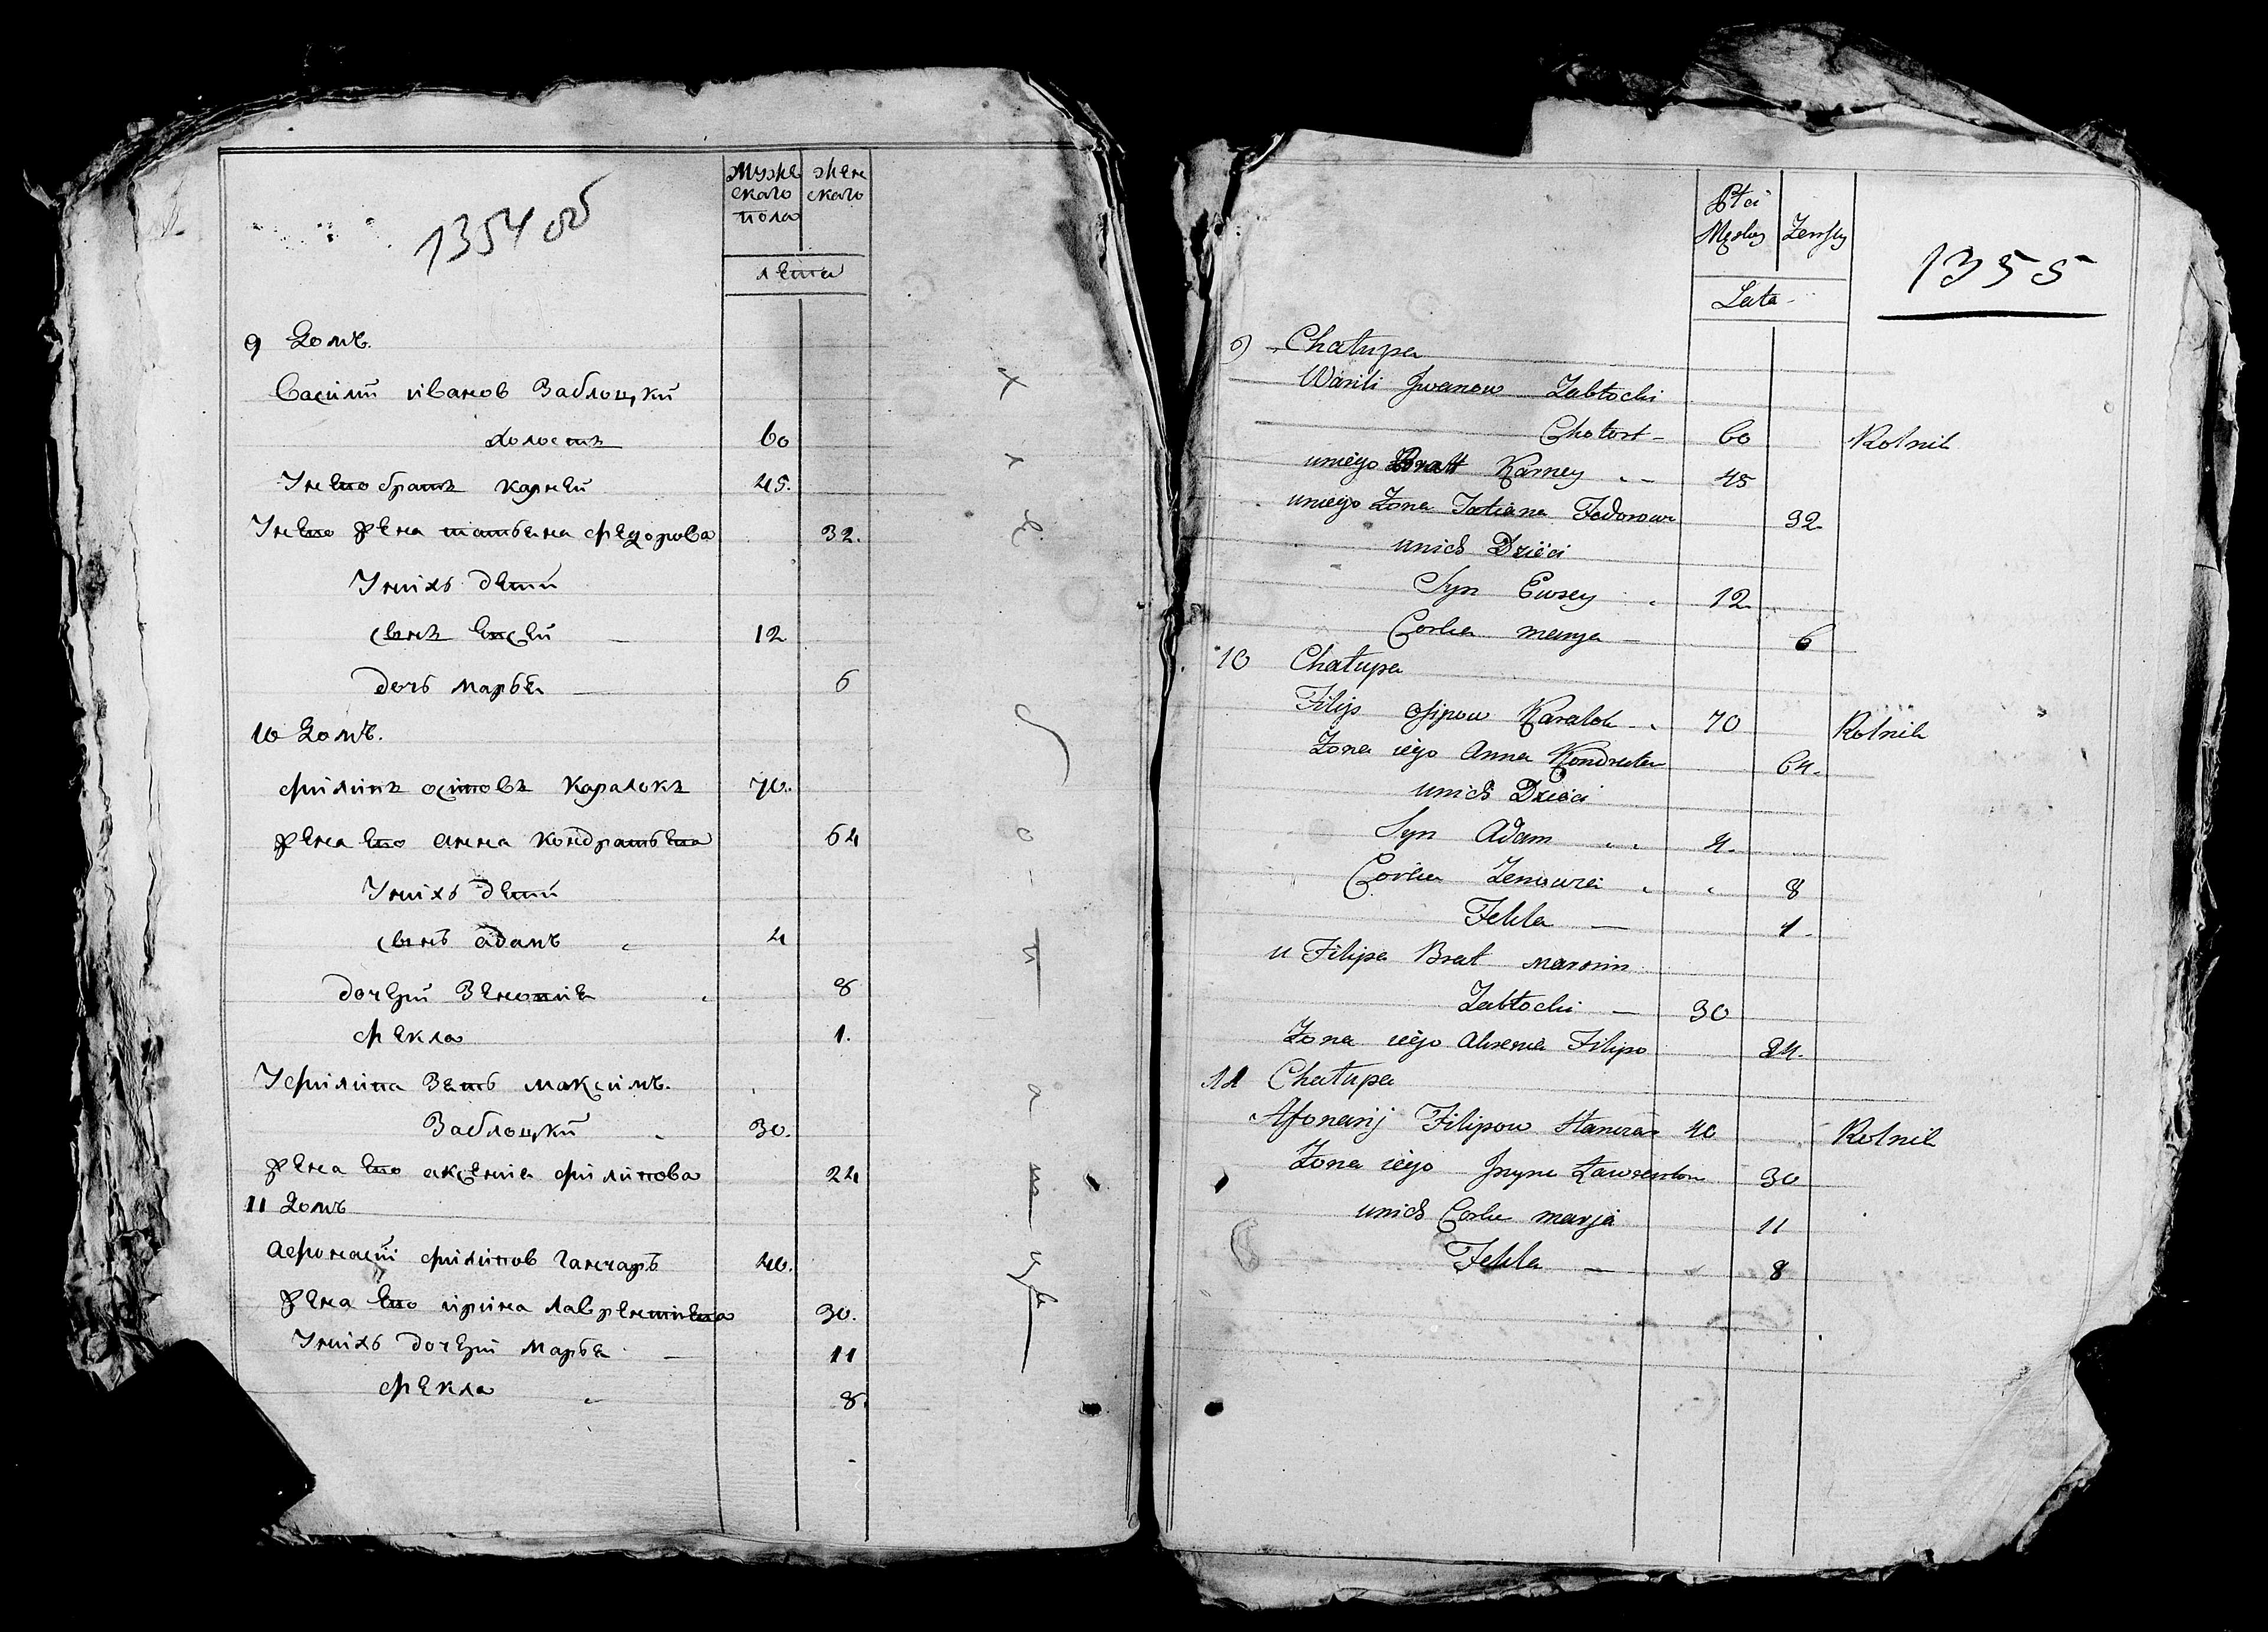 1354 об
Муже
ского
пола
жен
ского
лета
9 Домъ.
Василий иванов Заблоцкий
холостъ 60
У него братъ карней 45.
У него жена татьяна федорова 32.
У них дети
сынъ евсей 12
дочь марья 6
10 Домъ.
филипъ осиповъ каралокъ 70.
жена его анна кондратьева 64
У них дети
сынъ адамъ 4
дочери Зеновия 8
фекла 1.
У филипа Зять максимъ.
Заблоцкий 30.
жена его аксения филипова 24
11 Домъ
афонасий филипов ганчаръ 40.
жена его ирина лаврентиева 30.
У них дочери марья 11
фекла 8.
х
л
е
б
о
п
а
ш
цы
1355
Płci
Męskey Żenskey
Lata
9) Chałupa
Wasili Jwanow Zabłocki
Chołost 60 Rolnik
uniego Bratt Karney 45
uniego Żona Tatiana Fedorowa 32.
unich Dzieci
Syn Ewsey 12.
Corka marya 6
10 Chałupa
Filip Osipow Karalok 70 Rolnik
Żona iego Anna Kondratia 64.
unich Dzieci
Syn Adam 4.
Corka Zenowia 8
Fekla 1.
u Filipa Brat maxsim
Zabłocki 30
Żona iego Aksenia Filipo 24.
11 Chałupa
Afonasij Filipow Hanczar 40 Rolnik
Żona iego Jryna Ławrentow 30
unich Corka marja 11
Fekla 8